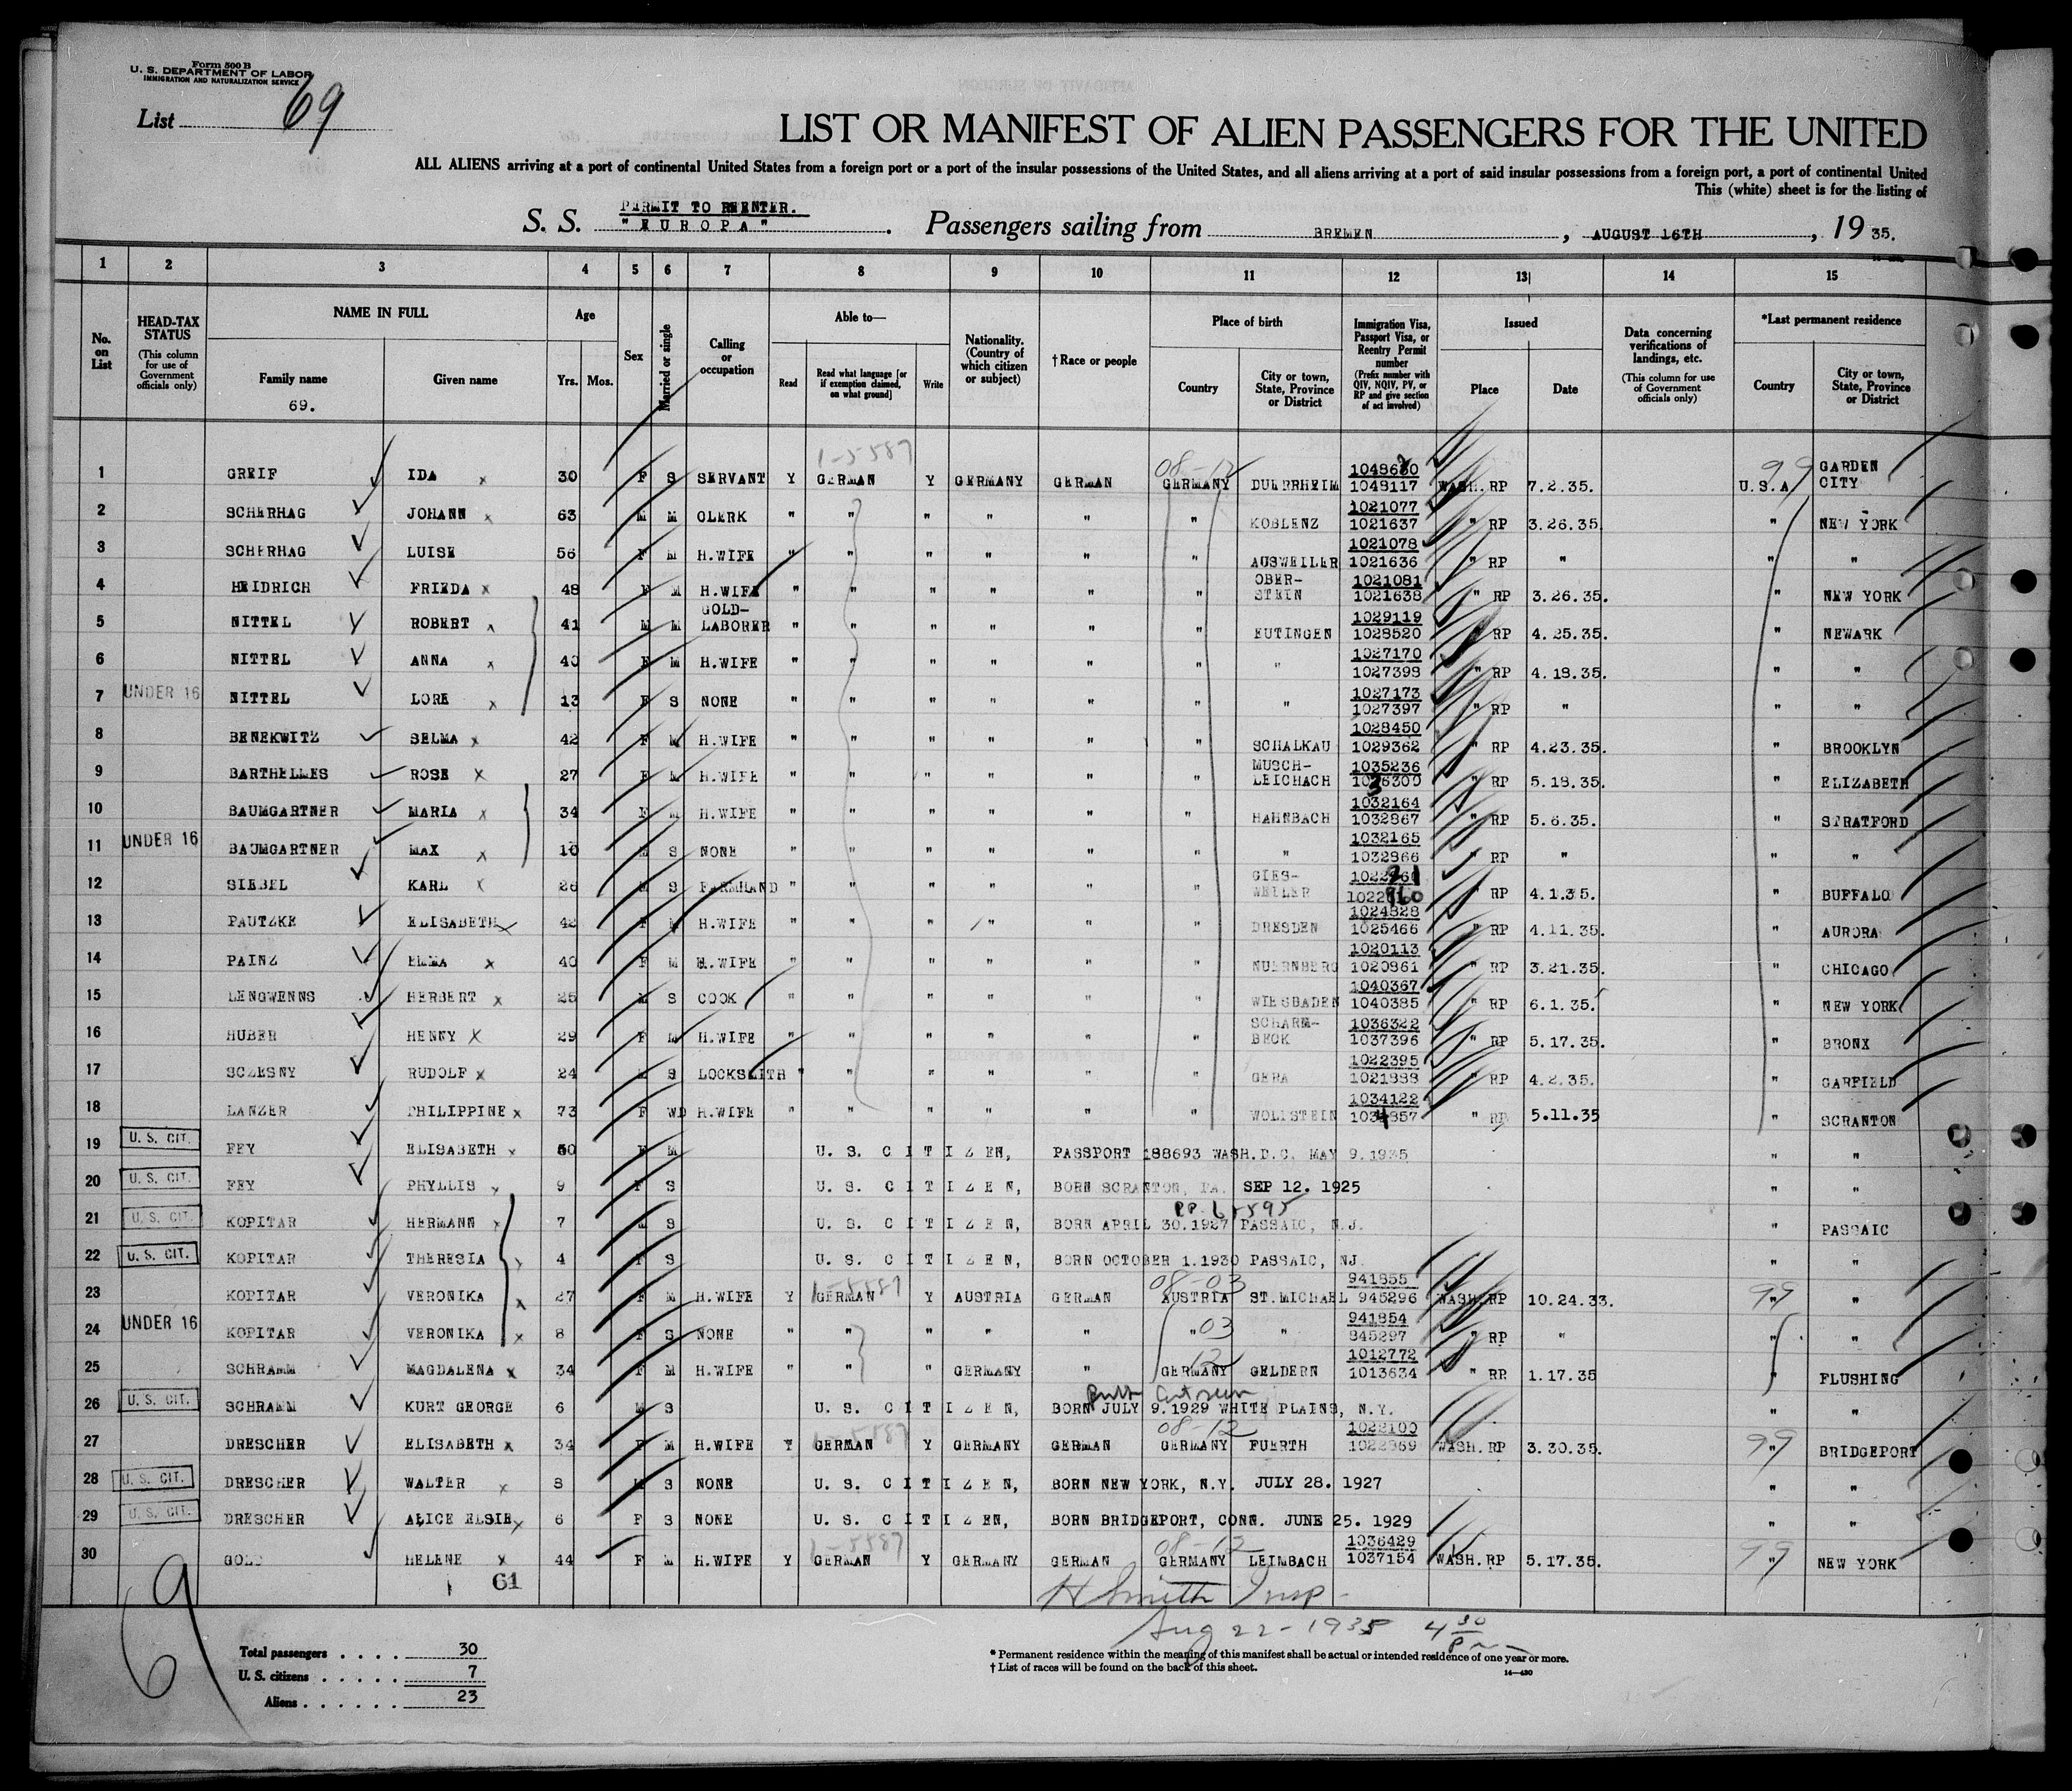 Form 500 B
U. S. DEPARTMENT OF LABOR
IMMIGRATION AND NATURALIZATION SERVICE
List 69
LIST OR MANIFEST OF ALIEN PASSENGERS FOR THE UNITED
ALL ALIENS arriving at a port of continental United States from a foreign port or a port of the insular possessions of the United States, and all aliens arriving at a port of said insular possessions from a foreign port, a port of continental United
This (white) sheet is for the listing of
PERMIT TO REENTER.
S. S. "EUROPA". Passengers sailing from BREMEN, AUGUST 16TH, 19 35.
1 2 3 4 5 6 7 8 9 10 11 12 13 14 15
No. on List
HEAD-TAX STATUS (This column for use of Government officials only)
NAME IN FULL
Family name
69.
Given name
Age
Yrs. Mos.
Sex
Married or single
Calling or occupation
Able to—
Read
Read what language [or if exemption claimed, on what ground]
Write
Nationality. (Country of which citizen or subject)
†Race or people
Place of birth
Country
City or town, State, Province or District
Immigration Visa, Passport Visa, or Reentry Permit number (Prefix number with QIV, NQIV, PV, or RP and give section of act involved)
Issued
Place
Date
Data concerning verifications of landings, etc. (This column for use of Government officials only)
*Last permanent residence
Country
City or town, State, Province or District
1-5587 08-12 99
1 GREIF IDA x 30 F S SERVANT Y GERMAN Y GERMANY GERMAN GERMANY DUERRHEIM 1048117 WASH. RP 7.2.35. U.S.A GARDEN CITY
2 SCHERHAG JOHANN x 63 M M CLERK " " " " " " KOBLENZ 1021077 1021637 " RP 3.26.35. " NEW YORK
3 SCHERHAG LUISE 56 F M H.WIFE " " " " " " AUSWEILLER 1021078 1021636 " RP " " "
4 HEIDRICH FRIEDA x 48 F M H.WIFE " " " " " " OBER-STEIN 1021081 1021638 " RP 3.26.35. " NEW YORK
5 NITTEL ROBERT x 41 M M GOLD-LABORER " " " " " " EUTINGEN 1029119 1028520 " RP 4.25.35. " NEWARK
6 NITTEL ANNA x 40 F M H.WIFE " " " " " " " 1027170 1027398 " RP 4.18.35. " "
7 UNDER 16 NITTEL LORE x 13 F S NONE " " " " " " " 1027173 1027397 " RP " " "
8 BENEKWITZ SELMA x 42 F M H.WIFE " " " " " " SCHALKAU 1028450 1029362 " RP 4.23.35. " BROOKLYN
9 BARTHELMES ROSE x 27 F M H.WIFE " " " " " " MUSCH-LEICHACH 1035236 1036300 " RP 5.18.35. " ELIZABETH
10 BAUMGARTNER MARIA x 34 F M H.WIFE " " " " " " HAHNBACH 1032164 1032867 " RP 5.6.35. " STRATFORD
11 UNDER 16 BAUMGARTNER MAX x 10 M S NONE " " " " " " " 1032165 1032866 " RP " " "
12 SIEBEL KARL x 26 M S FARMHAND " " " " " " " RP 4.1.35. " BUFFALO
13 PAUTZKE ELISABETH x 42 F M H.WIFE " " " " " " DRESDEN 1024828 1025466 " RP 4.11.35. " AURORA
14 PAINZ EMMA x 40 F M H.WIFE " " " " " " NUERNBERG 1020113 1020861 " RP 3.21.35. " CHICAGO
15 LENGWENNS HERBERT x 25 M S COOK " " " " " " WIESBADEN 1040367 1040385 " RP 6.1.35. " NEW YORK
16 HUBER HENNY x 29 F M H.WIFE " " " " " " SCHARM-BECK 1036322 1037396 " RP 5.17.35. " BRONX
17 SCZESNY RUDOLF x 24 M S LOCKSMITH " " " " " " GERA 1022395 1021888 " RP 4.2.35. " GARFIELD
18 LANZER PHILIPPINE x 73 F WD H.WIFE " " " " " " WOLLSTEIN 1034122 1034857 " RP 5.11.35 " SCRANTON
19 U. S. CIT. FEY ELISABETH x 50 F M U. S. CITIZEN, PASSPORT 188693 WASH.D.C. MAY 9.1935 " "
20 U. S. CIT. FEY PHYLLIS x 9 F S U. S. CITIZEN, BORN SCRANTON, PA. SEP 12. 1925 " "
21 U. S. CIT. KOPITAR HERMANN x 7 M S U. S. CITIZEN, BORN APRIL 30.1927 PASSAIC, N.J. " PASSAIC
22 U. S. CIT. KOPITAR THERESIA x 4 F S U. S. CITIZEN, BORN OCTOBER 1.1930 PASSAIC, NJ " "
1-5587 08-03 99
23 KOPITAR VERONIKA x 27 F M H.WIFE Y GERMAN Y AUSTRIA GERMAN AUSTRIA ST.MICHAEL 941855 945296 WASH.RP 10.24.33. " "
24 UNDER 16 KOPITAR VERONIKA x 8 F S NONE " " " " " " 03 " 941854 845297 " RP " " "
25 SCHRAMM MAGDALENA x 34 F M H.WIFE " " " GERMANY " 12 GERMANY GELDERN 1012772 1013634 " RP 1.17.35 " FLUSHING
26 U. S. CIT. SCHRAMM KURT GEORGE 6 M S U. S. CITIZEN, BORN JULY 9.1929 WHITE PLAINS, N.Y. " "
1-5587 08-12 99
27 DRESCHER ELISABETH x 34 F M H.WIFE Y GERMAN Y GERMANY GERMAN GERMANY FUERTH 1022100 1022859 WASH. RP 3.30.35. " BRIDGEPORT
28 U. S. CIT. DRESCHER WALTER x 8 M S NONE U. S. CITIZEN, BORN NEW YORK, N.Y. JULY 28. 1927 " "
29 U. S. CIT. DRESCHER ALICE ELSIE x 6 F S NONE U. S. CITIZEN, BORN BRIDGEPORT, CONN. JUNE 25. 1929 " "
1-5587 08-12 99
30 GOLD HELENE x 44 F M H.WIFE Y GERMAN Y GERMANY GERMAN GERMANY LEIMBACH 1036429 1037154 WASH. RP 5.17.35. " NEW YORK
61
H Smith Insp
69
Aug 22-1935 4 30 Pm
Total passengers . . . . 30
U. S. citizens . . . . . 7
Aliens . . . . . . 23
* Permanent residence within the meaning of this manifest shall be actual or intended residence of one year or more.
† List of races will be found on the back of this sheet.
14—430